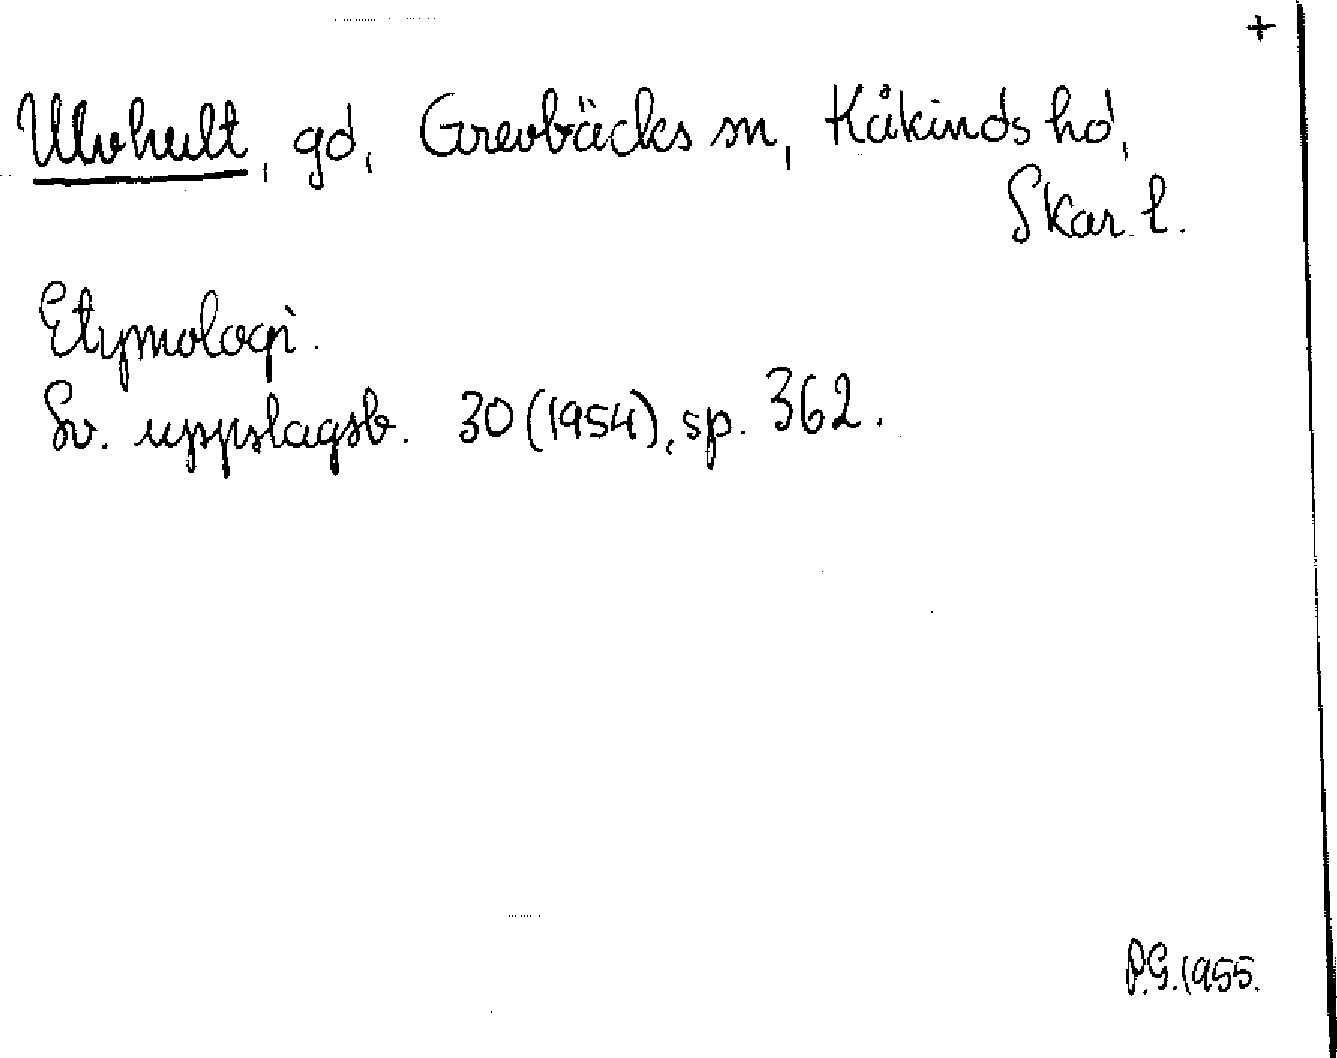 +
Ulvhult, gd, Grevbäcks sn, Kåkinds hd,
Skar. l.
Etymologi.
Sv. uppslagsb. 30 (1954), sp. 362.
P.G. 1955.